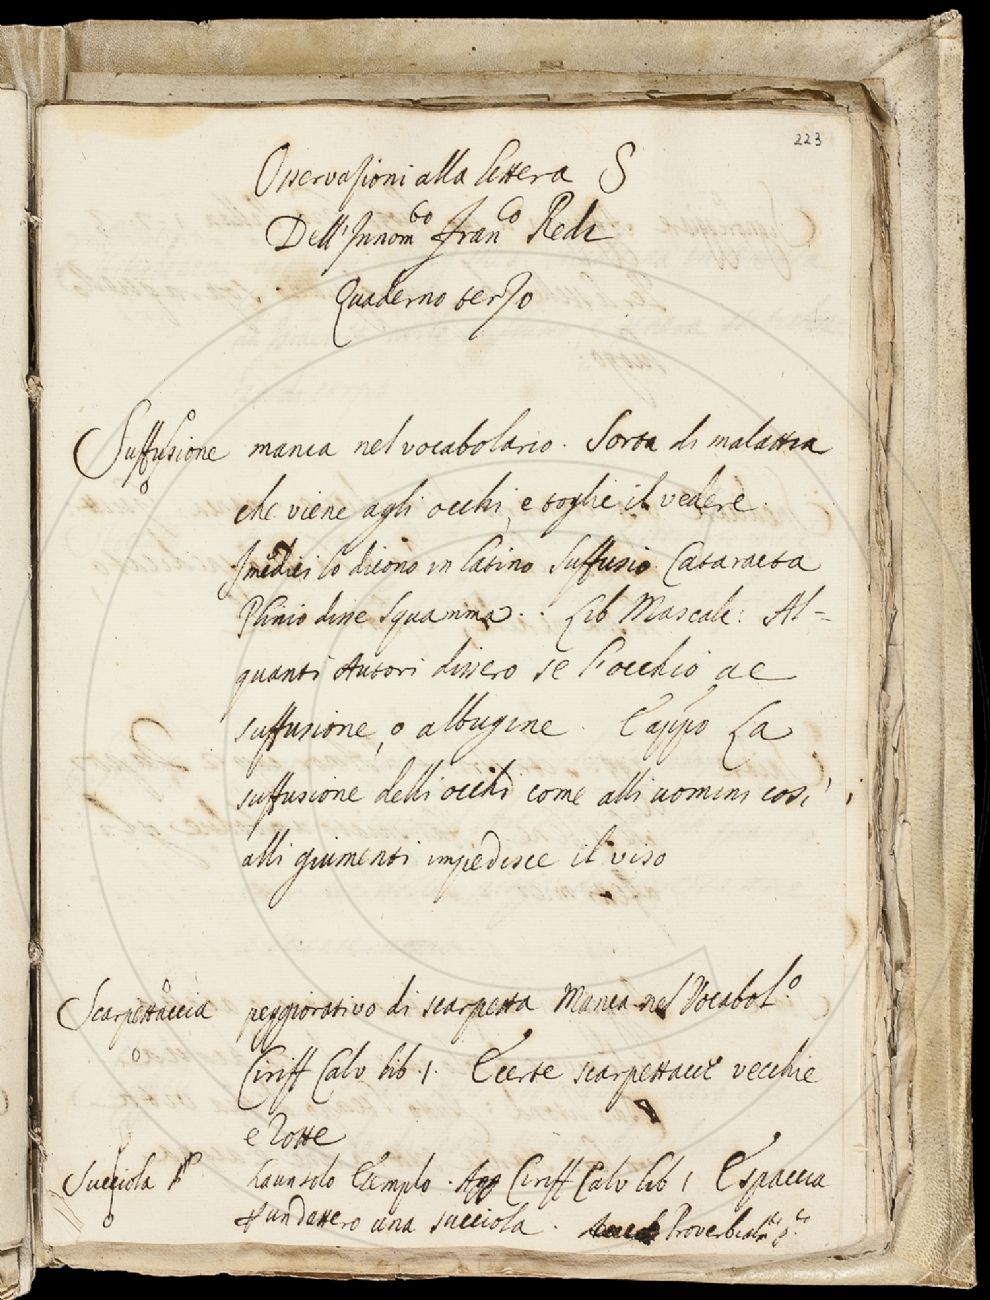 223
Osservazioni alla lettera S
Dell'Innom.to Fran.co Redi
Quaderno terzo
Suffusione manca nel vocabolario. Sorta di malattia
che viene agli occhi, e toglie il vedere
I medici lo dicono in latino Suffusio Cataracta
Plinio disse Squamma. Lib Mascalc: Al-
quanti Autori dissero se l'occhio ae
suffusione, o albugine. E appo La
suffusione delli occhi come alli uomini così
alli giumenti impedisce il viso
Scarpettaccia peggiorativo di scarpetta Manca nel Vocabol.o
Ciriff Calv lib. 1. E certe scarpettacce vecchie
e rotte
Succiola ha un solo Esemplo. Agg Ciriff Calv lib 1 E spaccia
tundattero una succiola. Proverbialm.te